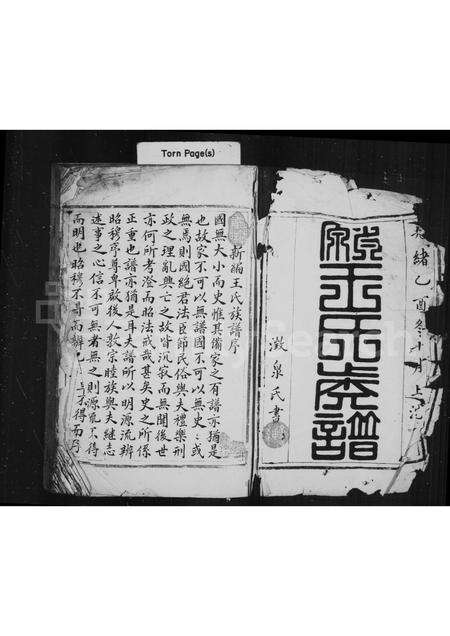 Torn Page(s)
光緒乙酉冬十月上浣
王氏族譜
澂泉氏書
新編王氏族譜序
國無大小而史惟其備家之有譜亦猶是
也故家不可以無譜國不可以無史史或
無焉則國絕君法臣節民俗與夫禮樂刑
政之理亂興亡之故皆沉寂而無聞後世
亦何所考澄而昭法戒哉甚矣史之所係
正重也譜亦猶是耳夫譜所以明源流辨
昭穆序尊卑啟後人敦宗睦族與夫繼志
述事之心信不可無者無之則源流不得
而明也昭穆不得而辨也